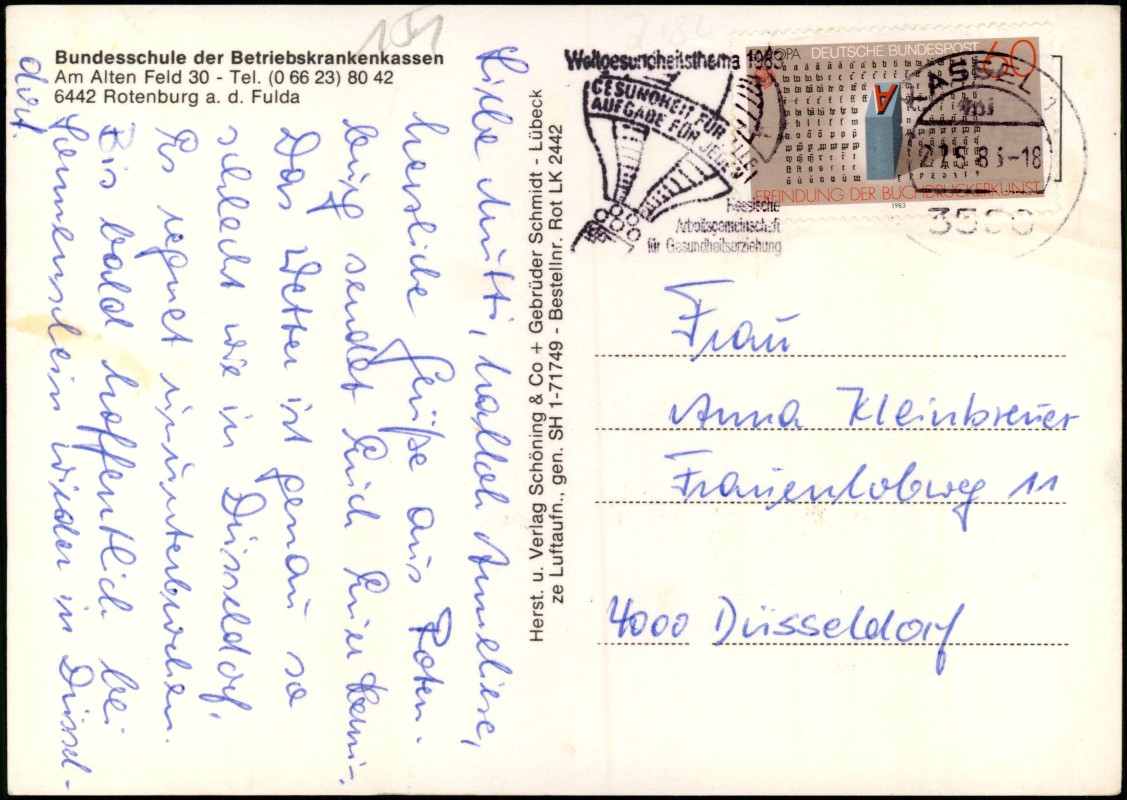 Bundesschule der Betriebskrankenkassen
Am Alten Feld 30 - Tel. (0 66 23) 80 42
6442 Rotenburg a. d. Fulda
Liebe Mutti, hallo Anneliese,
herzliche Grüße aus Roten-
burg sendet Euch Euer
Das Wetter ist genau so
schlecht wie in Düsseldorf.
Es regnet ununterbrochen.
Bis bald hoffentlich bei
Sonnenschein wieder in Düssel-
dorf.
Herst. u. Verlag Schöning & Co + Gebrüder Schmidt - Lübeck
ze Luftaufn., gen. SH 1-71749 - Bestellnr. Rot LK 2442
Weltgesundheitsthema 1983
GESUNDHEIT FÜR
AUFGABE FÜR JEDEN
Hessische
Arbeitsgemeinschaft
für Gesundheitserziehung
EUROPA DEUTSCHE BUNDESPOST 60
A
ERFINDUNG DER BUCHDRUCKERKUNST
1983
KASSEL
3500
Frau
Anna Kleinbreuer
Frauenlobweg 11
4000 Düsseldorf